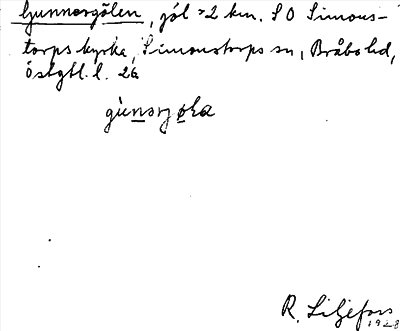 Gunnarsgölen, göl >2 km. SO Simons-
torps kyrka, Simonstorps sn, Bråbo hd,
östgtl. l. 26
R. Liljefors
1928